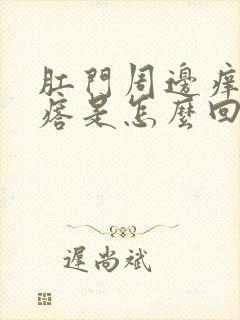 肛門周邊癢
痞是怎麼回
遲尚斌